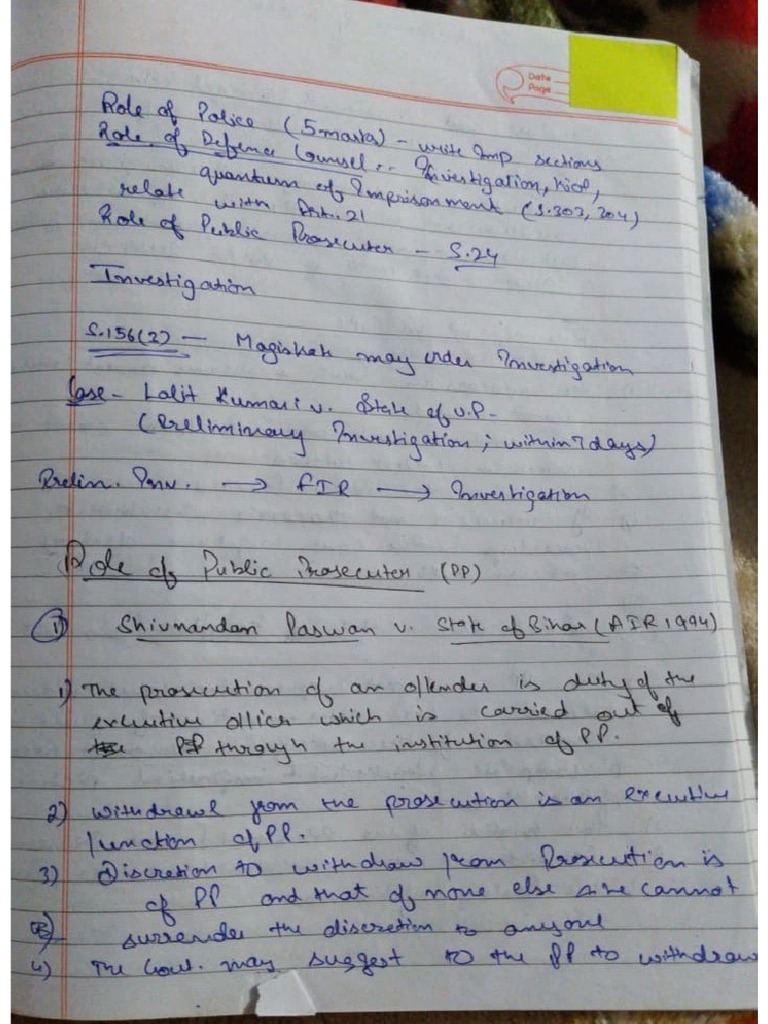 Date
Page
Role of Police (5 marks) - write Imp sections
Role of Defence Counsel.. Investigation,
quantum of Imprisonment (S.302, 304)
relate with Art. 21
Role of Public Prosecuter - S.24
Investigation
S.156(3) - Magistrate may order Investigation
Case - Lalit Kumari v. State of U.P-
(Preliminary Investigation; within 7 days)
Prelim. Inv. → FIR → Investigation
Role of Public Prosecuter (PP)
1) Shivnandan Paswan v. State of Bihar (AIR 1994)
1) The prosecution of an offender is duty of the
executive officer which is carried out of
the PP through the institution of PP.
2) Withdrawl from the prosecution is an executive
function of PP.
3) Discretion to withdraw from Prosecution is
of PP and that of none else s/he cannot
surrender the discretion to anyone
4) The Govt. may suggest to the PP to withdraw